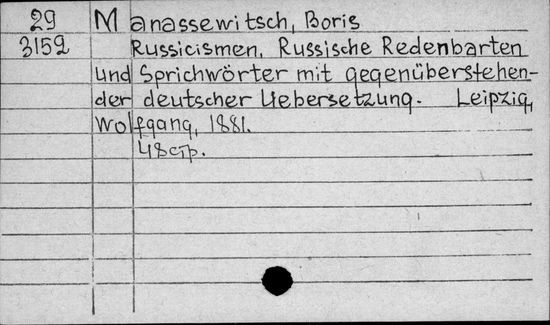 29 Manassewitsch, Boris
3152 Russicismen. Russische Redenbarten
und Sprichwörter mit gegenüberstehen-
der deutscher Uebersetzung. Leipzig,
Wolfgang, 1881.
48стр.